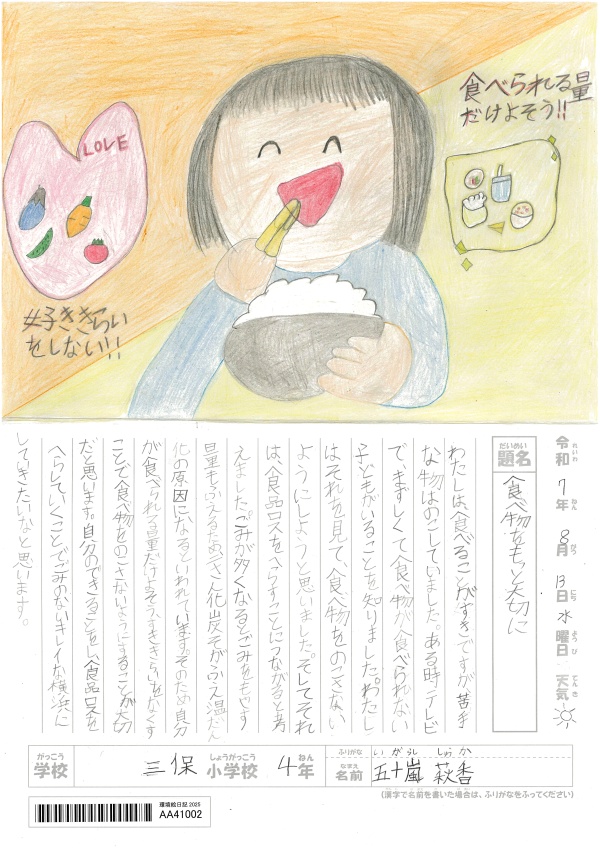 LOVE
好ききらい
をしない!!
食べられる量
だけよそう!!
令和7年8月13日水曜日 天気
れいわ ねん がつ にち ようび てんき
だいめい
題名
食べ物をもっと大切に
わたしは、食べることがすきですが苦手
な物はのこしていました。ある時、テレビ
で、まずしくて食べ物が食べられない
子どもがいることを知りました。わたし
はそれを見て、食べ物をのこさない
ようにしようと思いました。そしてそれ
は、食品ロスをへらすことにつながると考
えました。ごみが多くなるとごみをもやす
量もふえるため、二さん化炭そがふえ温だん
化の原因になるといわれています。そのため自分
が食べられる量だけよそう、すききらいをなくす
ことで食べ物をのこさないようにすることが大切
だと思います。自分のできることをし、食品ロスを
へらしていくことでごみのないキレイな横浜に
していきたいなと思います。
がっこう
学校
三保 小学校 4年
しょうがっこう ねん
ふりがな いがらし しょうか
なまえ
名前 五十嵐 萩香
(漢字で名前を書いた場合は、ふりがなをふってください)
環境絵日記 2025
AA41002